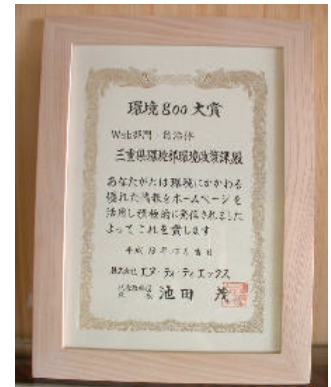 環境goo大賞
Web部門 自治体
三重県環境部環境政策課殿
あなたがたは環境にかかわる
優れた情報をホームページを
活用し積極的に発信されました
よってこれを賞します
平成 年 月吉日
株式会社エヌ・ティ・ティエックス
代表取締役
社長 池田 茂